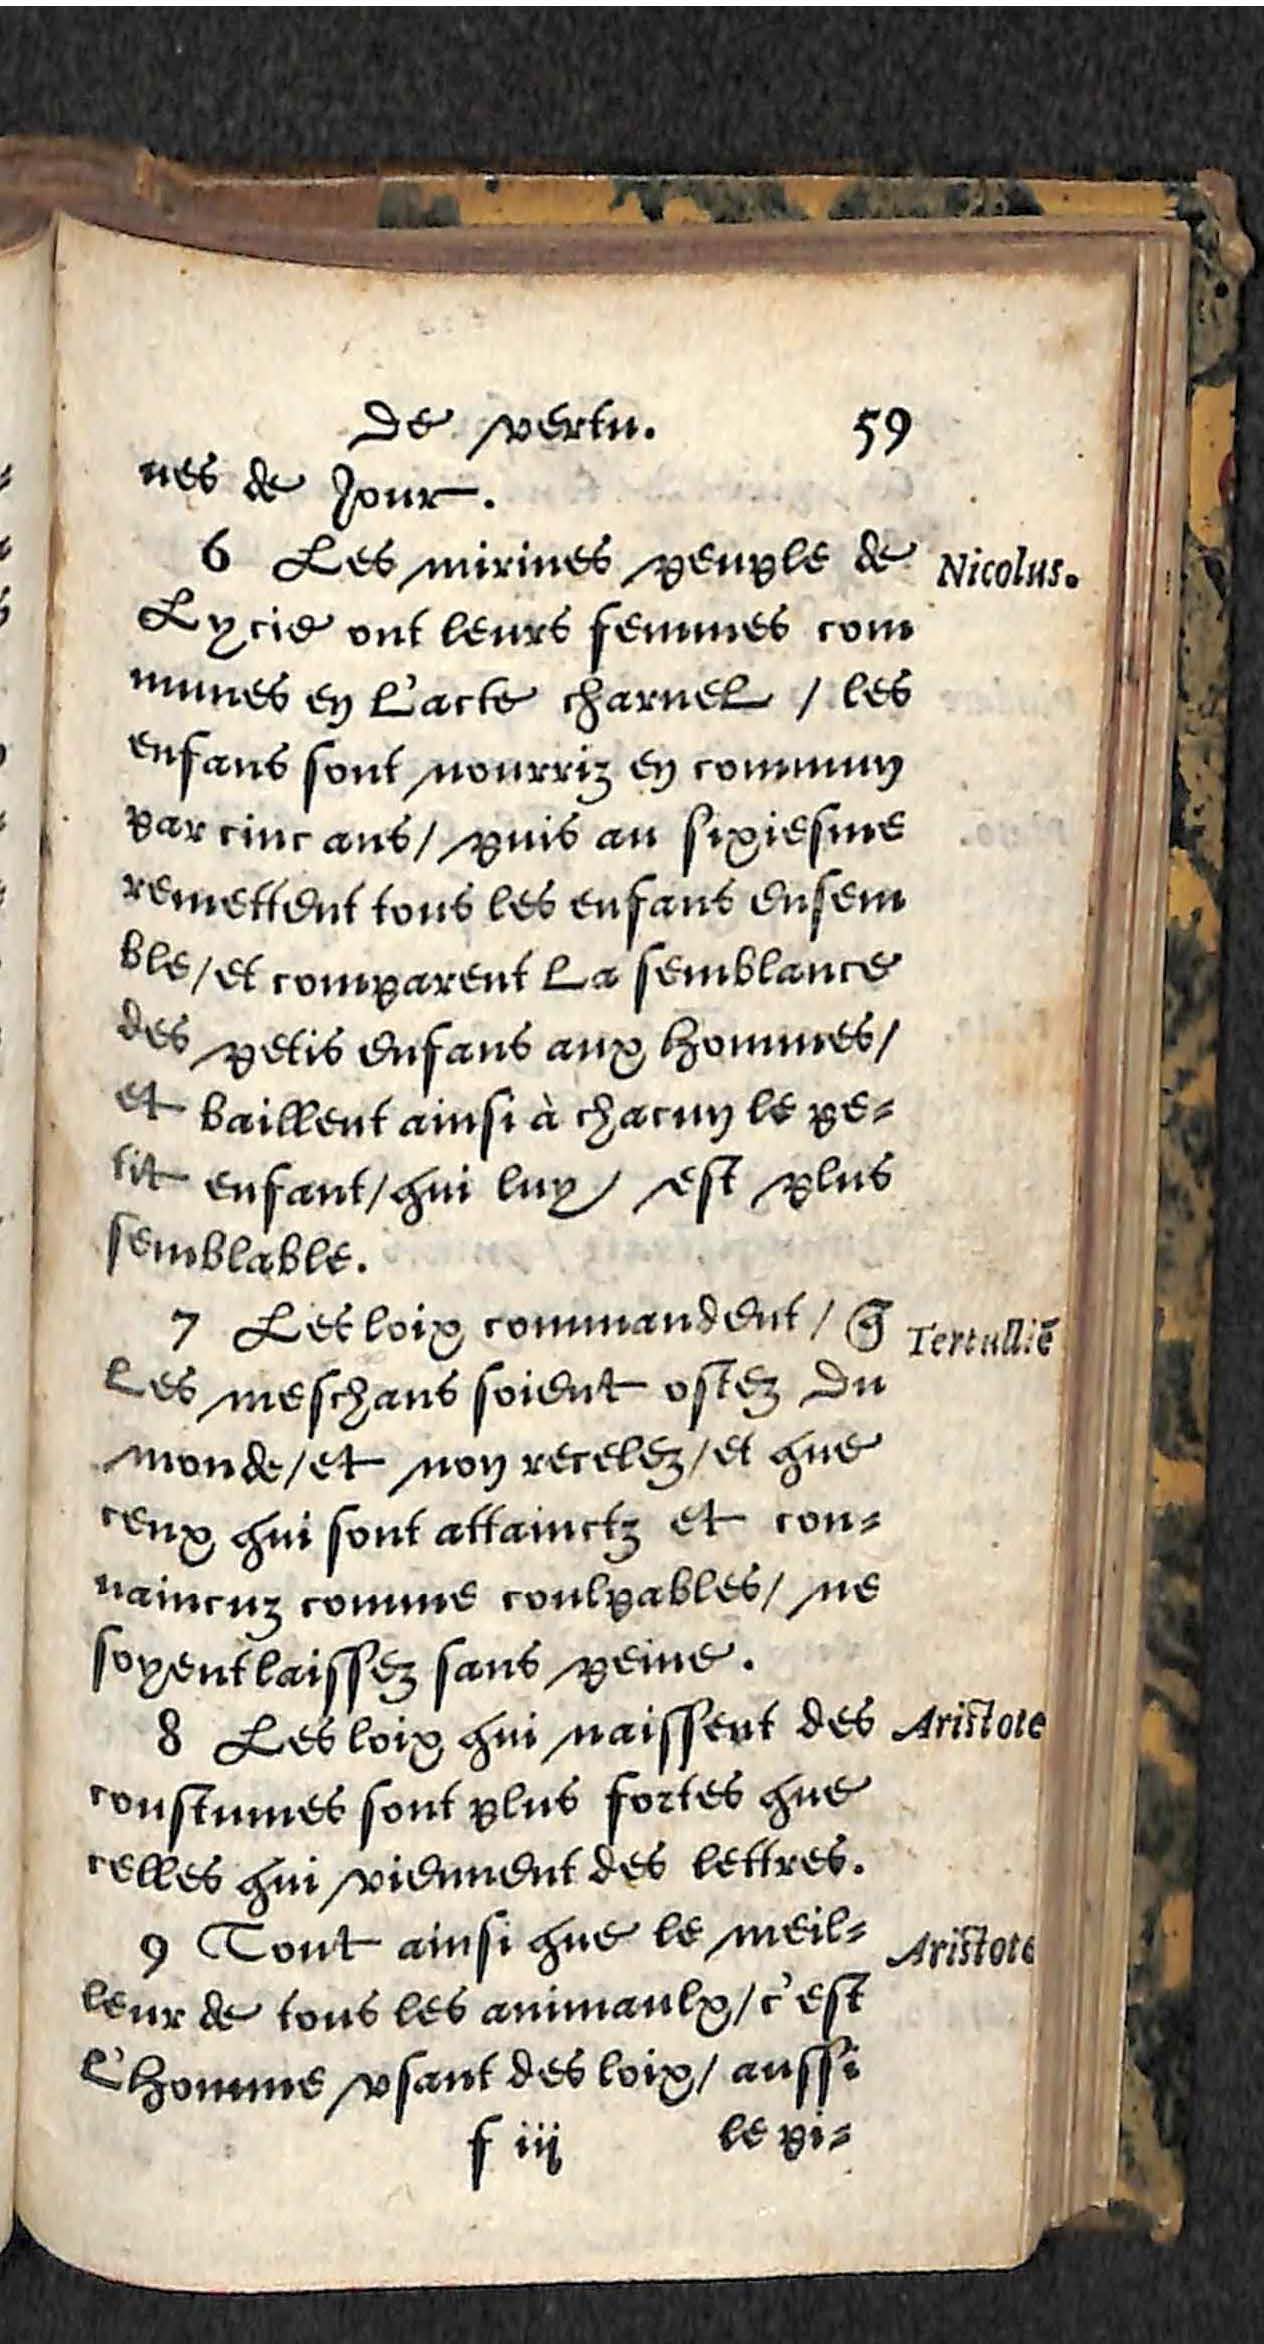 de vertu. 59
nes de Jour.
6 Les mirines peuple de Nicolus.
Lycie ont leurs femmes com
munes en l'acte charnel / les
enfans sont nourriz en commun
par cinc ans / puis au sixiesme
remettent tous les enfans ensem
ble / et comparent la semblance
des petis enfans aux hommes /
et baillent ainsi à chacun le pe=
tit enfant / qui luy / est plus
semblable.
7 Les loix commandent / q̃ Tertulliẽ
les meschans soient ostez du
monde / et non recelez / et que
ceux qui sont attainctz et con=
uaincuz comme coulpables / ne
soyent laissez sans peine.
8 Les loix qui naissent des Aristote
coustumes sont plus fortes que
celles qui viennent des lettres.
9 Tout ainsi que le meil= Aristote
leur de tous les animaulx / c'est
l'homme vsant des loix / aussi
f iij le pi=